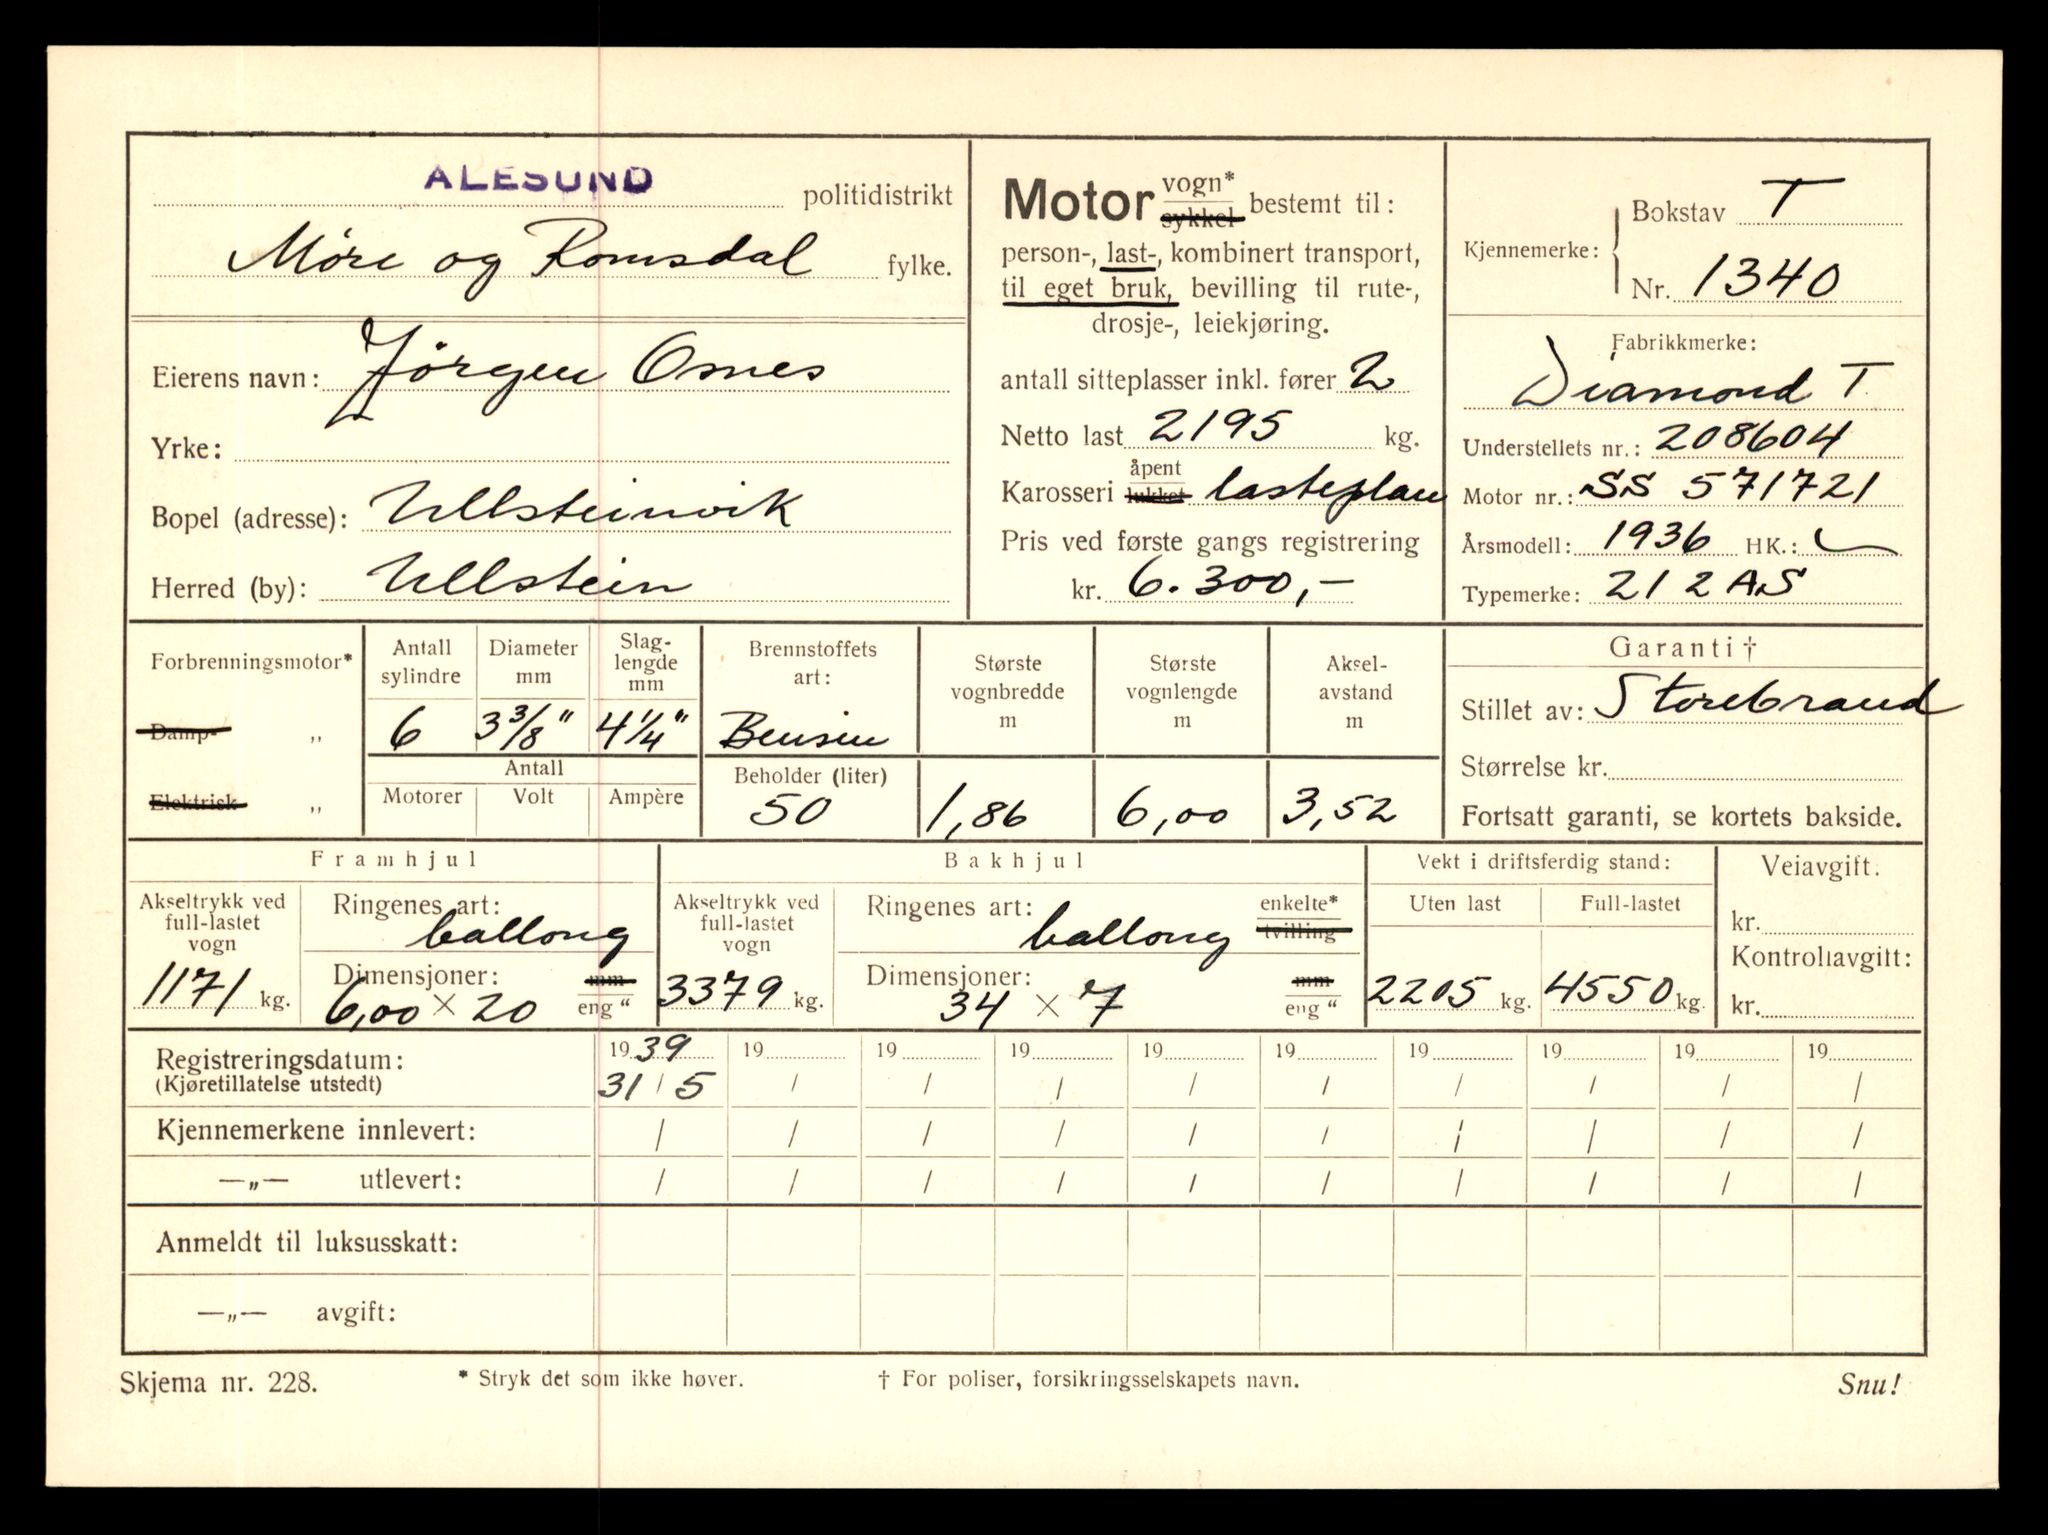 ALESUND politidistrikt
Møre og Romsdal fylke.
Eierens navn: Jörgen Osnes
Yrke:
Bopel (adresse): Ullsteinvik
Herred (by): Ullstein
Motor vogn* sykkel bestemt til:
person-, last-, kombinert transport,
til eget bruk, bevilling til rute-,
drosje-, leiekjøring.
antall sitteplasser inkl. fører 2
Netto last 2195 kg.
Karosseri åpent lukket lasteplan
Pris ved første gangs registrering
kr. 6.300,-
Kjennemerke: Bokstav T
Nr. 1340
Fabrikkmerke:
Diamond T
Understellets nr.: 208604
Motor nr.: SS 571721
Årsmodell: 1936 HK.:
Typemerke: 212 AS
Forbrenningsmotor*
Damp- „
Elektrisk „
Antall sylindre
6
Diameter mm
3 3/8"
Slag-
lengde
mm
4 1/4"
Antall
Motorer Volt Ampère
Brennstoffets
art:
Bensin
Beholder (liter)
50
Største
vognbredde
m
1,86
Største
vognlengde
m
6,00
Aksel-
avstand
m
3,52
Garanti †
Stillet av: Storebrand
Størrelse kr.
Fortsatt garanti, se kortets bakside.
Framhjul
Akseltrykk ved
full-lastet
vogn
1171 kg.
Ringenes art:
ballong
Dimensjoner: mm
6,00 × 20 eng "
Bakhjul
Akseltrykk ved
full-lastet
vogn
3379 kg.
Ringenes art: enkelte*
ballong tvilling
Dimensjoner: mm
34 × 7 eng "
Vekt i driftsferdig stand:
Uten last Full-lastet
2205 kg. 4550 kg.
Veiavgift:
kr.
Kontrollavgitt:
kr.
Registreringsdatum: 1939 19 19 19 19 19 19 19 19 19
(Kjøretillatelse utstedt) 31 / 5 / / / / / / / / /
Kjennemerkene innlevert: / / / / / / / / / /
—„— utlevert: / / / / / / / / / /
Anmeldt til luksusskatt:
—„— avgift:
Skjema nr. 228. * Stryk det som ikke høver. † For poliser, forsikringsselskapets navn. Snu!